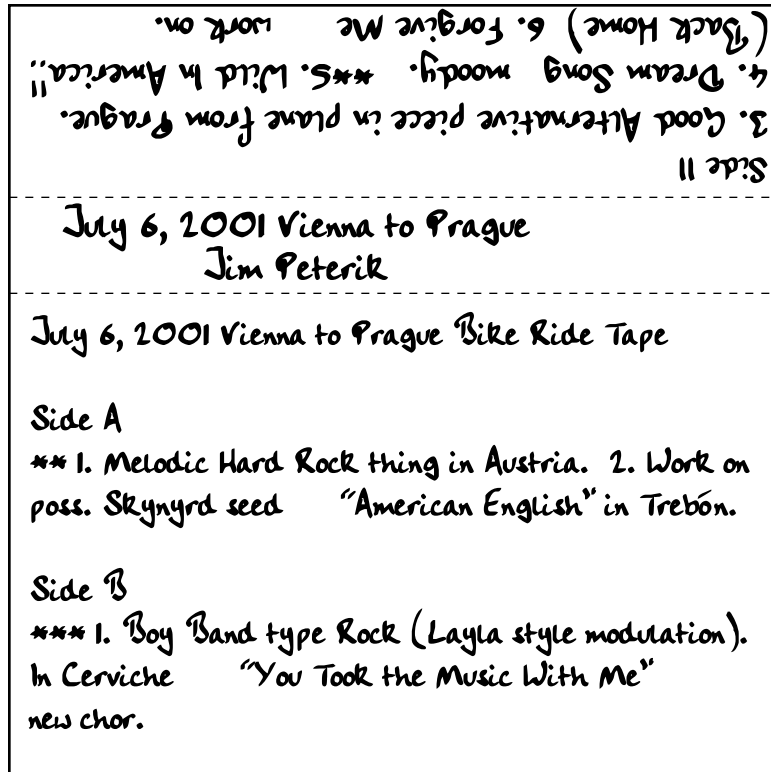 Side 11
3. Good Alternative piece in plane from Prague.
4. Dream Song moody. **5. Wild In America!!
(Back Home) 6. Forgive Me work on.
July 6, 2001 Vienna to Prague
Jim Peterik
July 6, 2001 Vienna to Prague Bike Ride Tape
Side A
** 1. Melodic Hard Rock thing in Austria. 2. Work on
poss. Skynyrd seed "American English" in Trebón.
Side B
*** 1. Boy Band type Rock (Layla style modulation).
In Cerviche "You Took the Music With Me"
new chor.